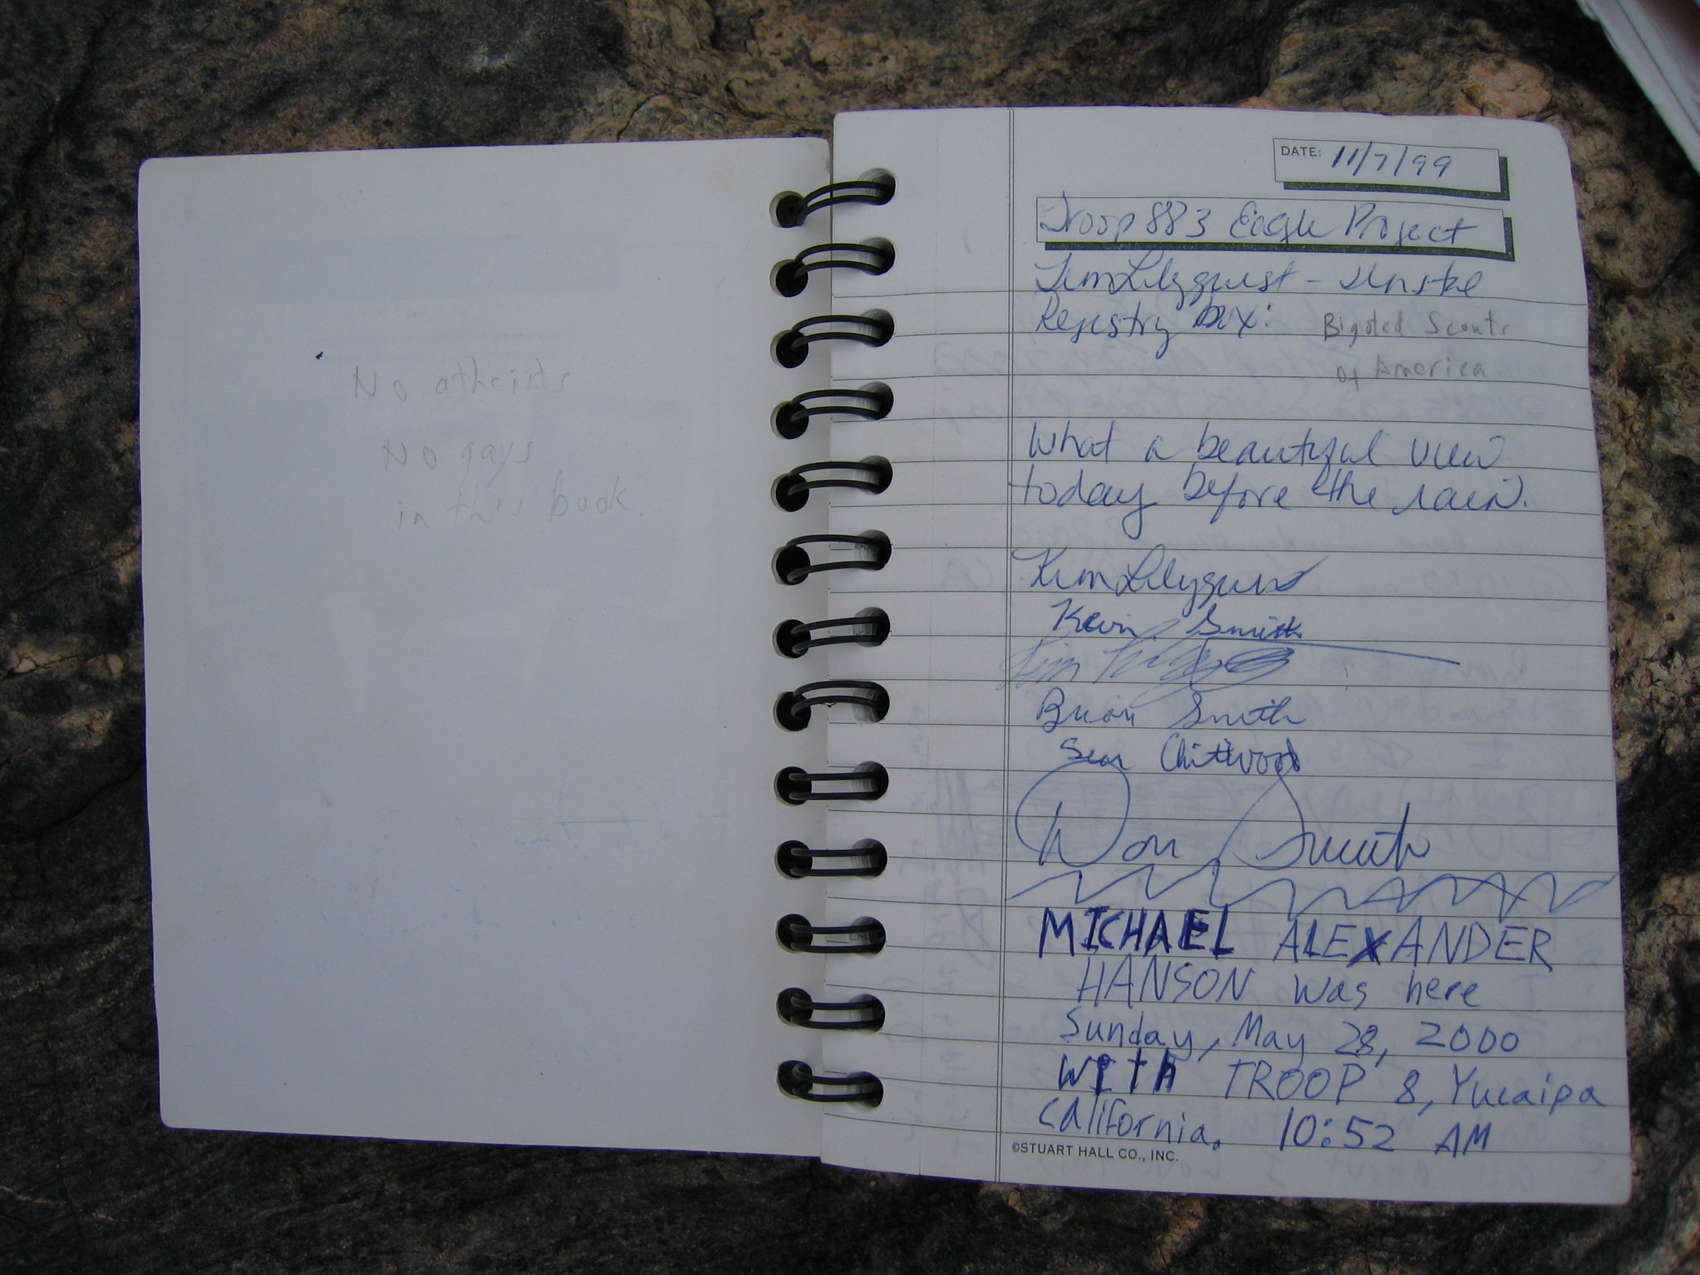 No atheists
No gays
in this book.
DATE: 11/7/99
Troop 883 Eagle Project
Tim Lilyquist -
Registry Box:
Bigoted Scouts
of America
What a beautiful view
today before the rain.
Kim Lilyquist
Kevin Smith
Tim
Brian Smith
Sean Chitwood
Don Smith
MICHAEL ALEXANDER
HANSON was here
Sunday, May 28, 2000
WITH TROOP 8, Yucaipa
California. 10:52 AM
©STUART HALL CO., INC.